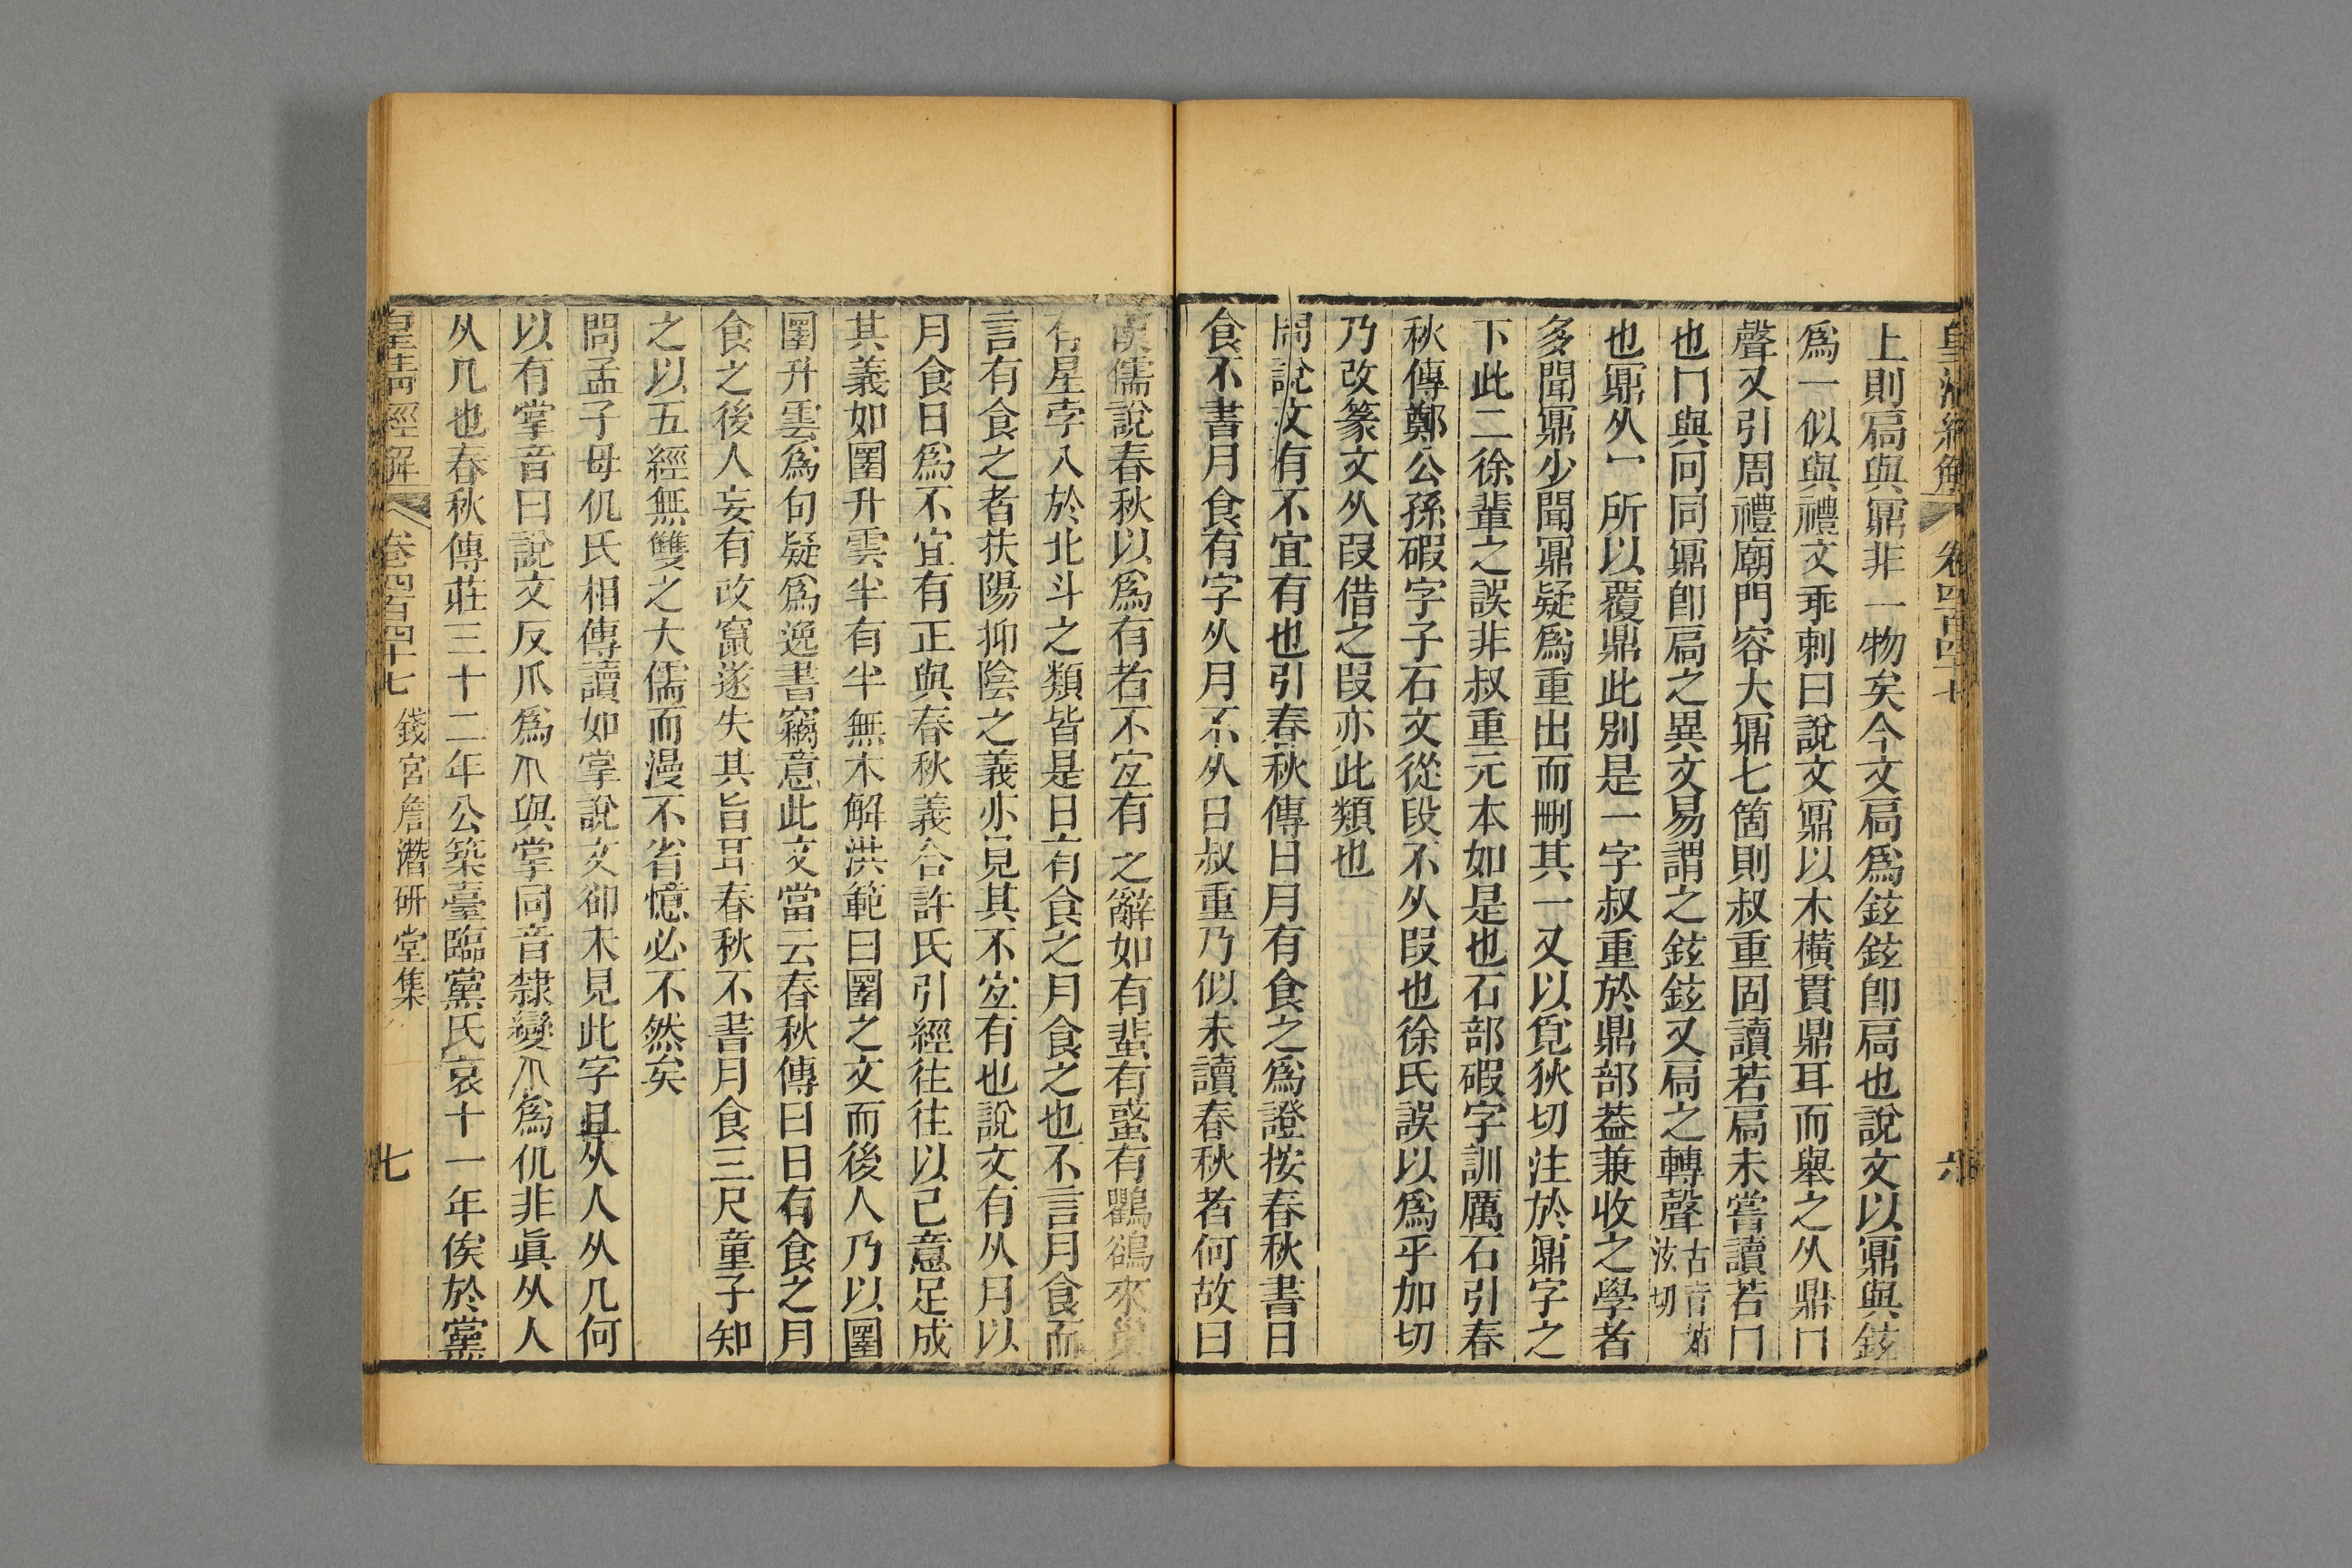 皇清經解 卷四百四十七 六
上則扃與鼏非一物矣今文扃爲鉉鉉卽扃也說文以鼏與鉉
爲一似與禮文乖剌曰說文鼏以木橫貫鼎耳而舉之从鼎冂
聲又引周禮廟門容大鼏七箇則叔重固讀若扃未嘗讀若冂
也冂與冋同鼏卽扃之異文易謂之鉉鉉又扃之轉聲古音
泫切
也鼏从冖所以覆鼎此別是一字叔重於鼎部葢兼收之學者
多聞鼏少聞鼏疑爲重出而刪其一又以莧狄切注於鼏字之
下此二徐輩之誤非叔重元本如是也石部碬字訓厲石引春
秋傳鄭公孫碬字子石文從段不从叚也徐氏誤以爲乎加切
乃改篆文从叚借之叚亦此類也
問說文有不宜有也引春秋傳日月有食之爲證按春秋書日
食不書月食有字从月不从日叔重乃似未讀春秋者何故曰
漢儒說春秋以爲有者不宐有之辭如有蜚有蜮有鸜鵒來巢
有星孛入於北斗之類皆是日有食之月食之也不言月食而
言有食之者扶陽抑陰之義亦見其不宐有也說文有从月以
月食日爲不宜有正與春秋義合許氏引經往往以己意足成
其義如圛升雲半有半無本解洪範曰圛之文而後人乃以圛
圛升雲爲句疑爲逸書竊意此文當云春秋傳曰日有食之月
食之後人妄有改竄遂失其旨耳春秋不書月食三尺童子知
之以五經無雙之大儒而漫不省憶必不然矣
問孟子母仉氏相傳讀如掌說文卻未見此字且从人从几何
以有掌音曰說文反爪爲𠂬與掌同音隸變𠂬爲仉非眞从人
从几也春秋傳莊三十二年公築臺臨黨氏哀十一年俟於黨
皇清經解 卷四百四十七 錢宮詹潛研堂集 七